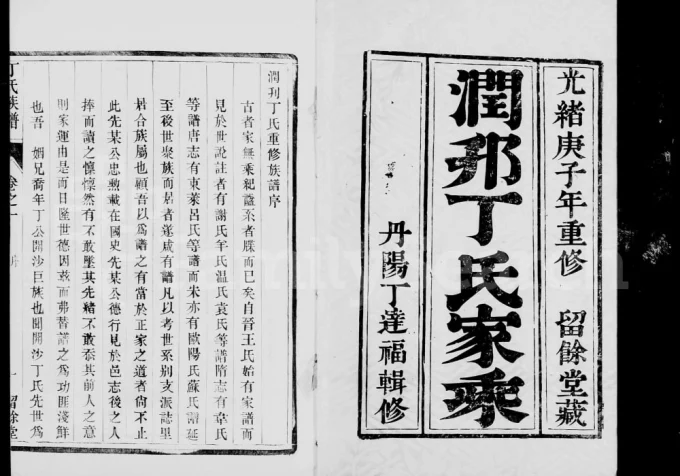 光緒庚子年重修 留餘堂藏
潤邦丁氏家乘
丹陽丁達福輯修
潤邦丁氏重修族譜序
古者家無乘紀譜系者牒而已矣自晉王氏始有家譜而
見於世說註者有謝氏羊氏温氏袁氏等譜隋志有韋氏
等譜唐志有東萊呂氏等譜而朱亦有歐陽氏蘇氏譜延
至後世聚族而居者遂咸有譜凡以考世系别支派誌里
居合族屬也顧吾以為譜之有當於正家之道者尙不止
此先某公忠勲載在國史先某公德行見於邑志後之人
捧而讀之懔懔然有不敢墜其先緒不敢忝其前人之意
則家運由是而日隆世德因兹而弗替譜之為功匪淺鮮
也吾 姻兄喬年丁公開沙巨族也聞開沙丁氏先世為
丁氏族譜 卷之一 一 留餘堂